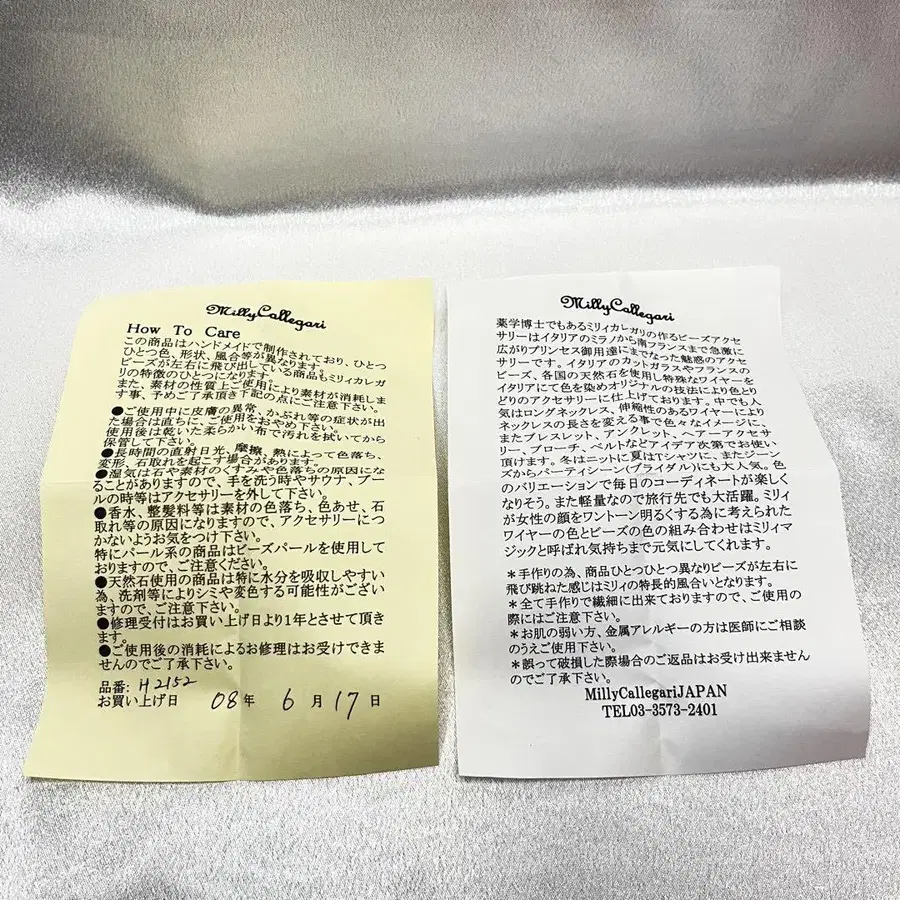 MillyCallegari
How To Care
この商品はハンドメイドで制作されており、ひとつ
ひとつ色、形状、風合等が異なります。
ビーズが左右に飛び出している商品もミリィカレガ
リの特徴のひとつになります。
また、素材の性質上ご使用により素材が消耗しま
す事、予めご了承頂き下記の点にご注意下さい。
●ご使用中に皮膚の異常、かぶれ等の症状が出
た場合は直ちにご使用をおやめ下さい。
使用後は乾いた柔らかい布で汚れを拭いてから
保管して下さい。
●長時間の直射日光、摩擦、熱によって色落ち、
変形、石取れを起こす場合があります。
●湿気は石や素材のくすみや色落ちの原因にな
ることがありますので、手を洗う時やサウナ、プー
ルの時等はアクセサリーを外して下さい。
●香水、整髪料等は素材の色落ち、色あせ、石
取れ等の原因になりますので、アクセサリーにつ
かないようお気をつけ下さい。
特にパール系の商品はビーズパールを使用して
おりますので、ご注意ください。
●天然石使用の商品は特に水分を吸収しやすい
為、洗剤等によりシミや変色する可能性がござい
ますので、ご注意下さい。
●修理受付はお買い上げ日より1年とさせて頂き
ます。
●ご使用後の消耗によるお修理はお受けできま
せんのでご了承下さい。
品番: H2152
お買い上げ日 08年 6月17日
MillyCallegari
薬学博士でもあるミリィカレガリの作るビーズアクセ
サリーはイタリアのミラノから南フランスまで急激に
広がりプリンセス御用達にまでなった魅惑のアクセ
サリーです。イタリアのカットガラスやフランスの
ビーズ、各国の天然石を使用し特殊なワイヤーを
イタリアにて色を染めオリジナルの技法により色とり
どりのアクセサリーに仕上げております。中でも人
気はロングネックレス、伸縮性のあるワイヤーにより
ネックレスの長さを変える事で色々なイメージに、
またブレスレット、アンクレット、ヘアーアクセサ
リー、ブローチ、ベルトなどアイデア次第でお使い
頂けます。冬はニットに夏はTシャツに、またジーン
ズからパーティシーン(ブライダル)にも大人気。色
のバリエーションで毎日のコーディネートが楽しく
なりそう。また軽量なので旅行先でも大活躍。ミリィ
が女性の顔をワントーン明るくする為に考えられた
ワイヤーの色とビーズの色の組み合わせはミリィマ
ジックと呼ばれ気持ちまで元気にしてくれます。
＊手作りの為、商品ひとつひとつ異なりビーズが左右に
飛び跳ねた感じはミリィの特長的風合いとなります。
＊全て手作りで繊細に出来ておりますので、ご使用の
際にはご注意下さい。
＊お肌の弱い方、金属アレルギーの方は医師にご相談
のうえご使用下さい。
＊誤って破損した際場合のご返品はお受け出来ません
のでご了承下さい。
MillyCallegariJAPAN
TEL03-3573-2401